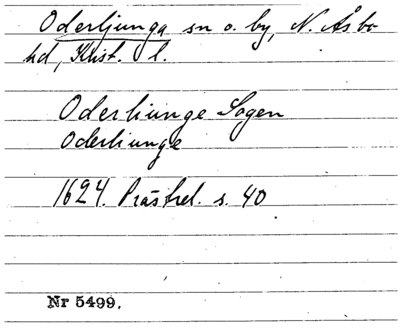 Oderljunga sn o. by, N. Åsbo
hd, Krist. l.
Oderliunge Sogen
Oderliunge
1624. Prästrel. s. 40
Nr 5499.